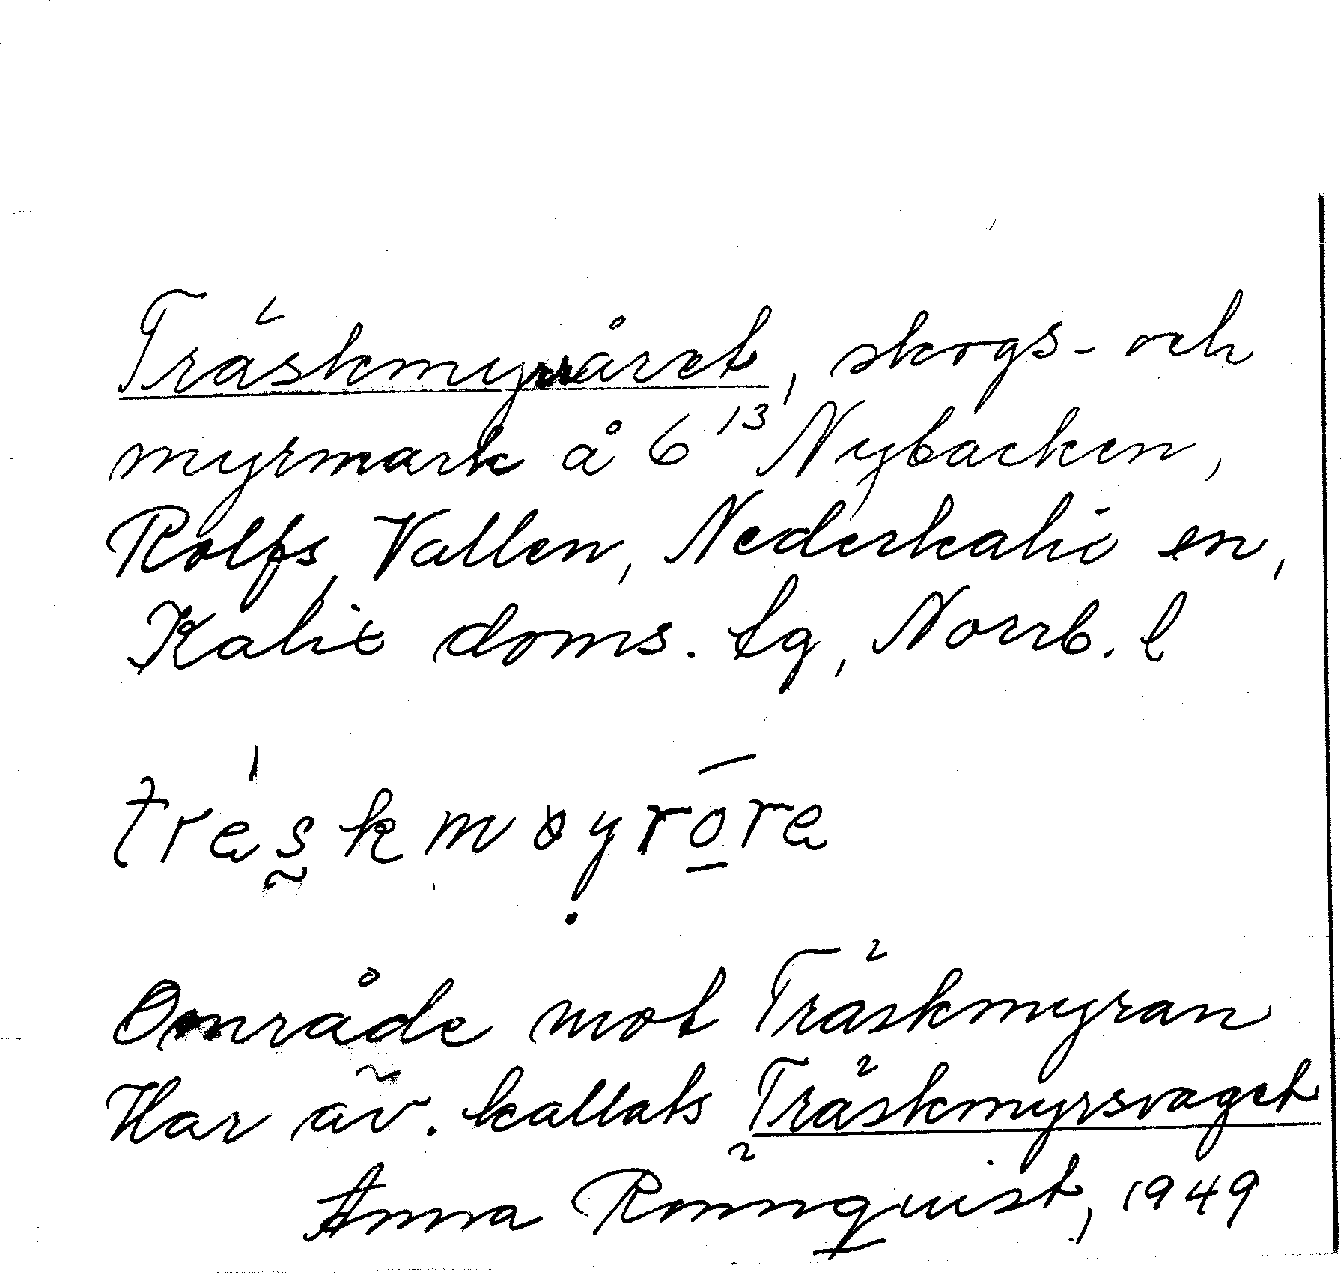 Träskmyråret, skogs- och
myrmark å 6¹³ Nybacken,
Rolfs, Vallen, Nederkalix en,
Kalix doms. lg, Norrb. l
Område mot Träskmyran
Har äv. kallats Träskmyrsvaget
Anna Rönnquist, 1949